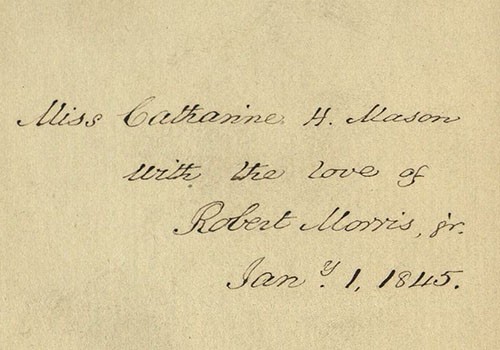 Miss Catharine H. Mason
With the love of
Robert Morris, jr.
Jany. 1, 1845.